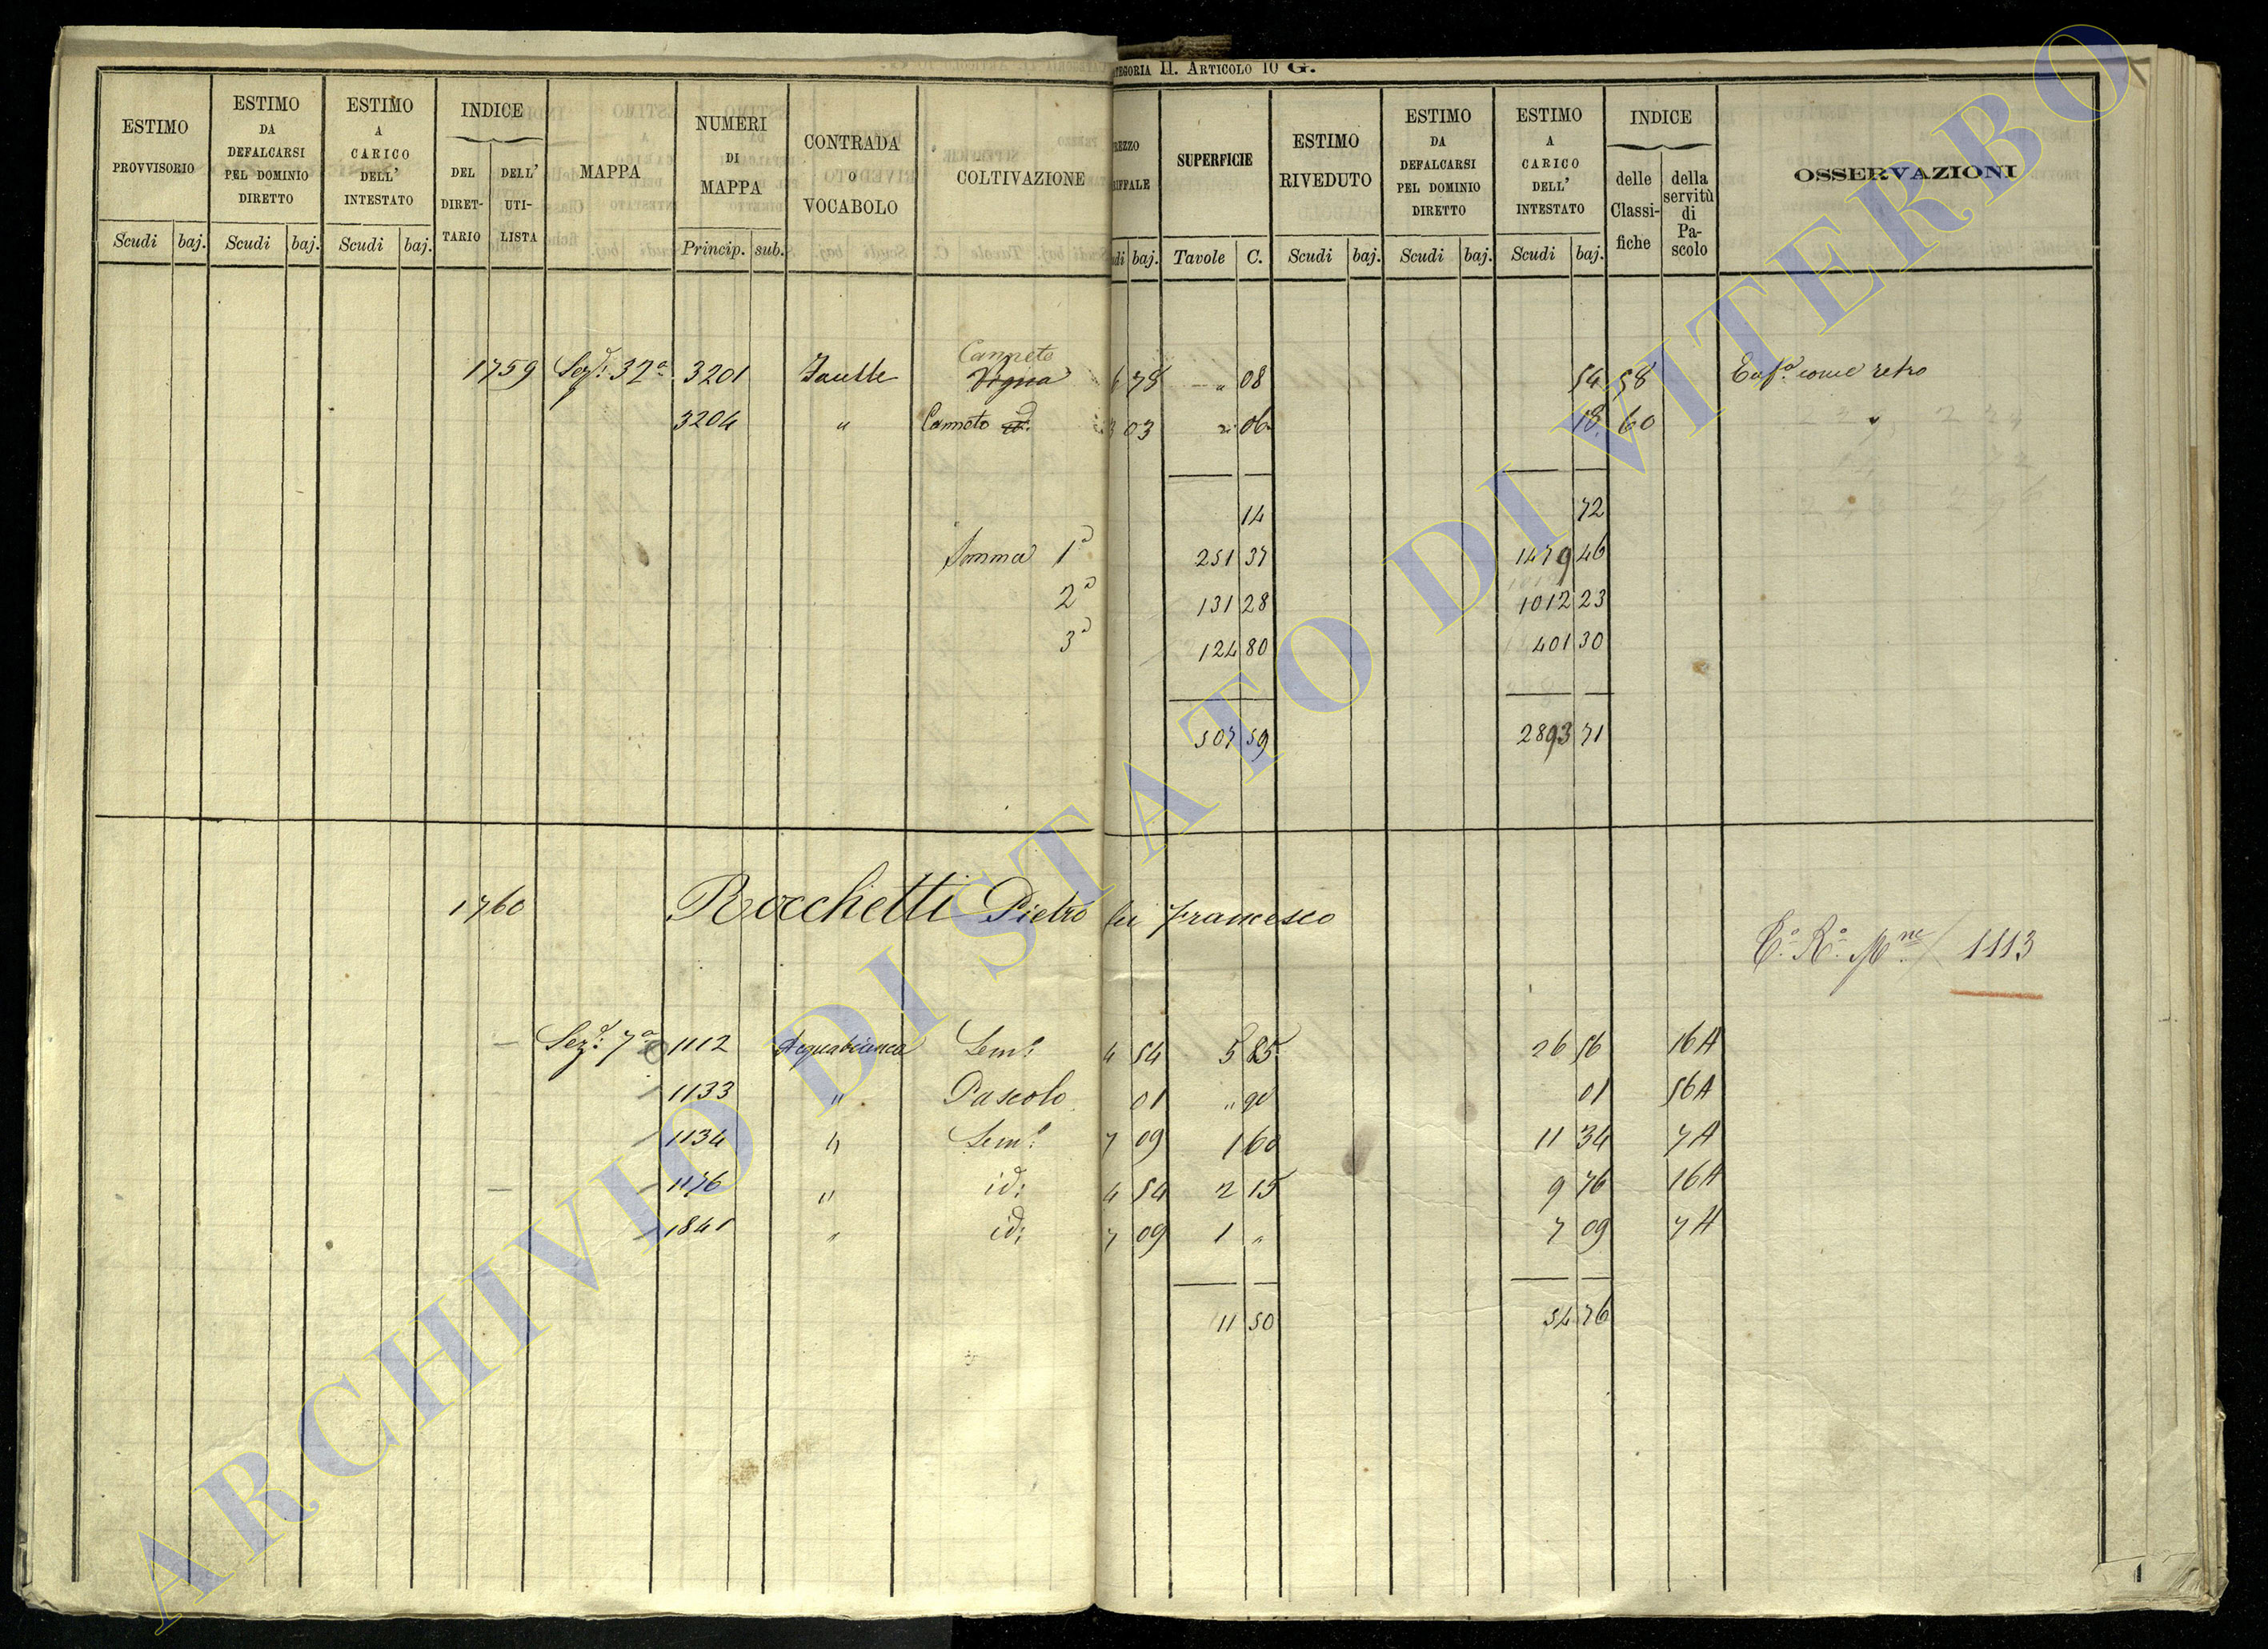 Categoria 11. Articolo 10 G.
ESTIMO PROVVISORIO Scudi baj.
ESTIMO DA DEFALCARSI PEL DOMINIO DIRETTO Scudi baj.
ESTIMO A CARICO DELL' INTESTATO Scudi baj.
INDICE DEL DIRET- TARIO DELL' UTI- LISTA
MAPPA
NUMERI DI MAPPA Princip. sub.
CONTRADA o VOCABOLO
COLTIVAZIONE
REZZO RIFFALE di baj.
SUPERFICIE Tavole C.
ESTIMO RIVEDUTO Scudi baj.
ESTIMO DA DEFALCARSI PEL DOMINIO DIRETTO Scudi baj.
ESTIMO A CARICO DELL' INTESTATO Scudi baj.
INDICE delle Classi- fiche della servitù di Pa- scolo
OSSERVAZIONI
Canneto
1759 Sez.e 32a 3201 Vigna 6 78 " 08 54 58 come retro
3204 " Canneto id. 3 03 " 06 18 60 "
14 72
Somma 1a 251 37 1479 46
2a 131 28 1012 23
3a 124 80 401 30
507 59 2893 71
1760 Rocchetti Pietro fu Francesco
1113
Sez.e 7a 1112 Acquabianca Sem.o 4 54 5 85 26 56 16A
1133 " Pascolo 01 " 90 01 56A
1134 " Sem.o 7 09 1 60 11 34 7A
1176 " id. 4 54 2 15 9 76 16A
1841 " id. 7 09 1 " 7 09 7A
11 50 54 76
1
ARCHIVIO DI STATO DI VITERBO